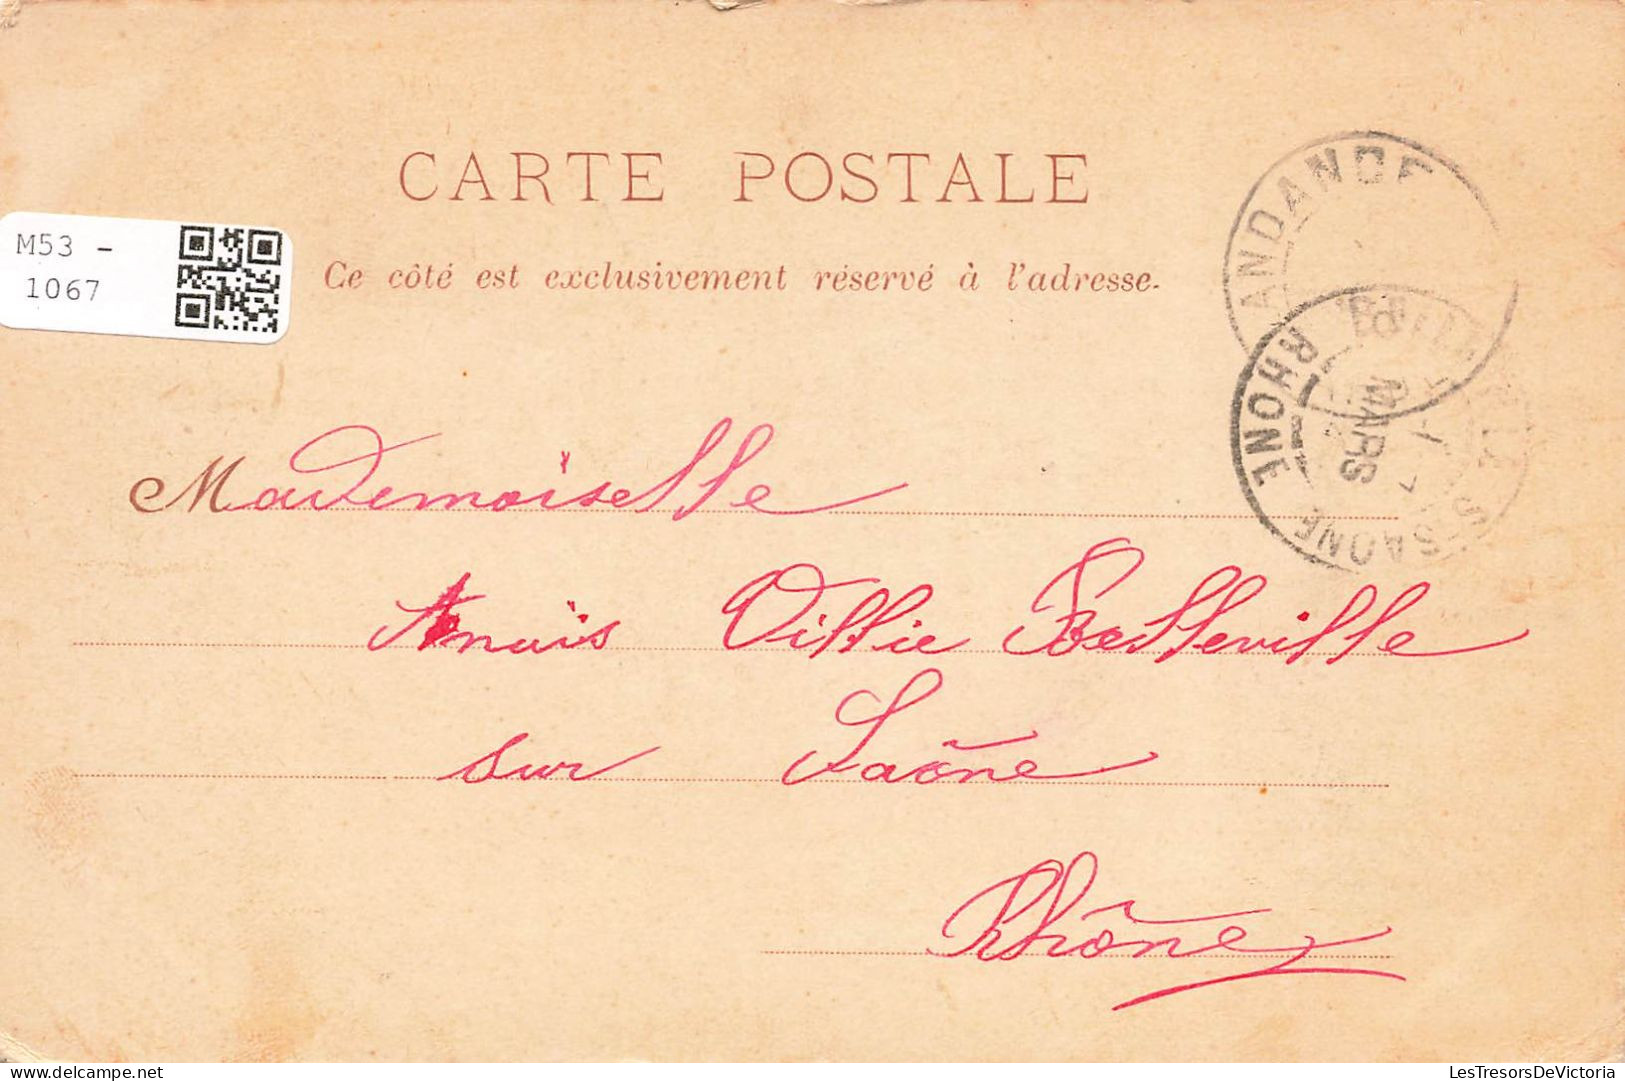 CARTE POSTALE
M53 -
1067
Ce côté est exclusivement réservé à l'adresse.
ANDANCE
RHONE
MARS
S SAONE
Mademoiselle
Anaïs Villie Belleville
sur Saône
Rhône
delcampe.net
LesTresorsDeVictoria